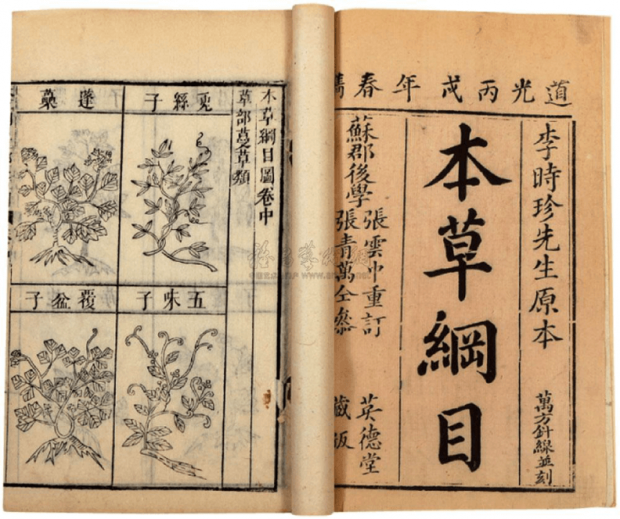 道光丙戌年春鐫
李時珍先生原本
萬方針線並刻
本草綱目
蘇郡後學
張雲中重訂
張青萬仝參
英德堂
藏板
本草綱目圖卷中
草部蔓草類
兎絲子
蓬蘽
五味子
覆盆子